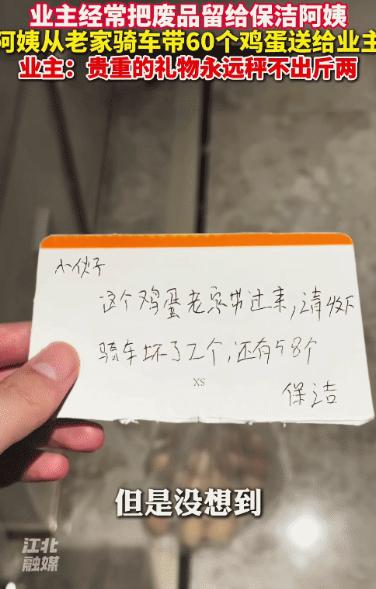 业主经常把废品留给保洁阿姨
阿姨从老家骑车带60个鸡蛋送给业主
业主：贵重的礼物永远秤不出斤两
小伙子
这个鸡蛋老家带过来，请收下
骑车坏了2个，还有58个
XS
保洁
但是没想到
江北
融媒